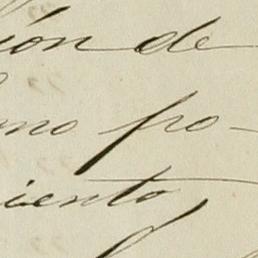 ión de
mo po-
iento